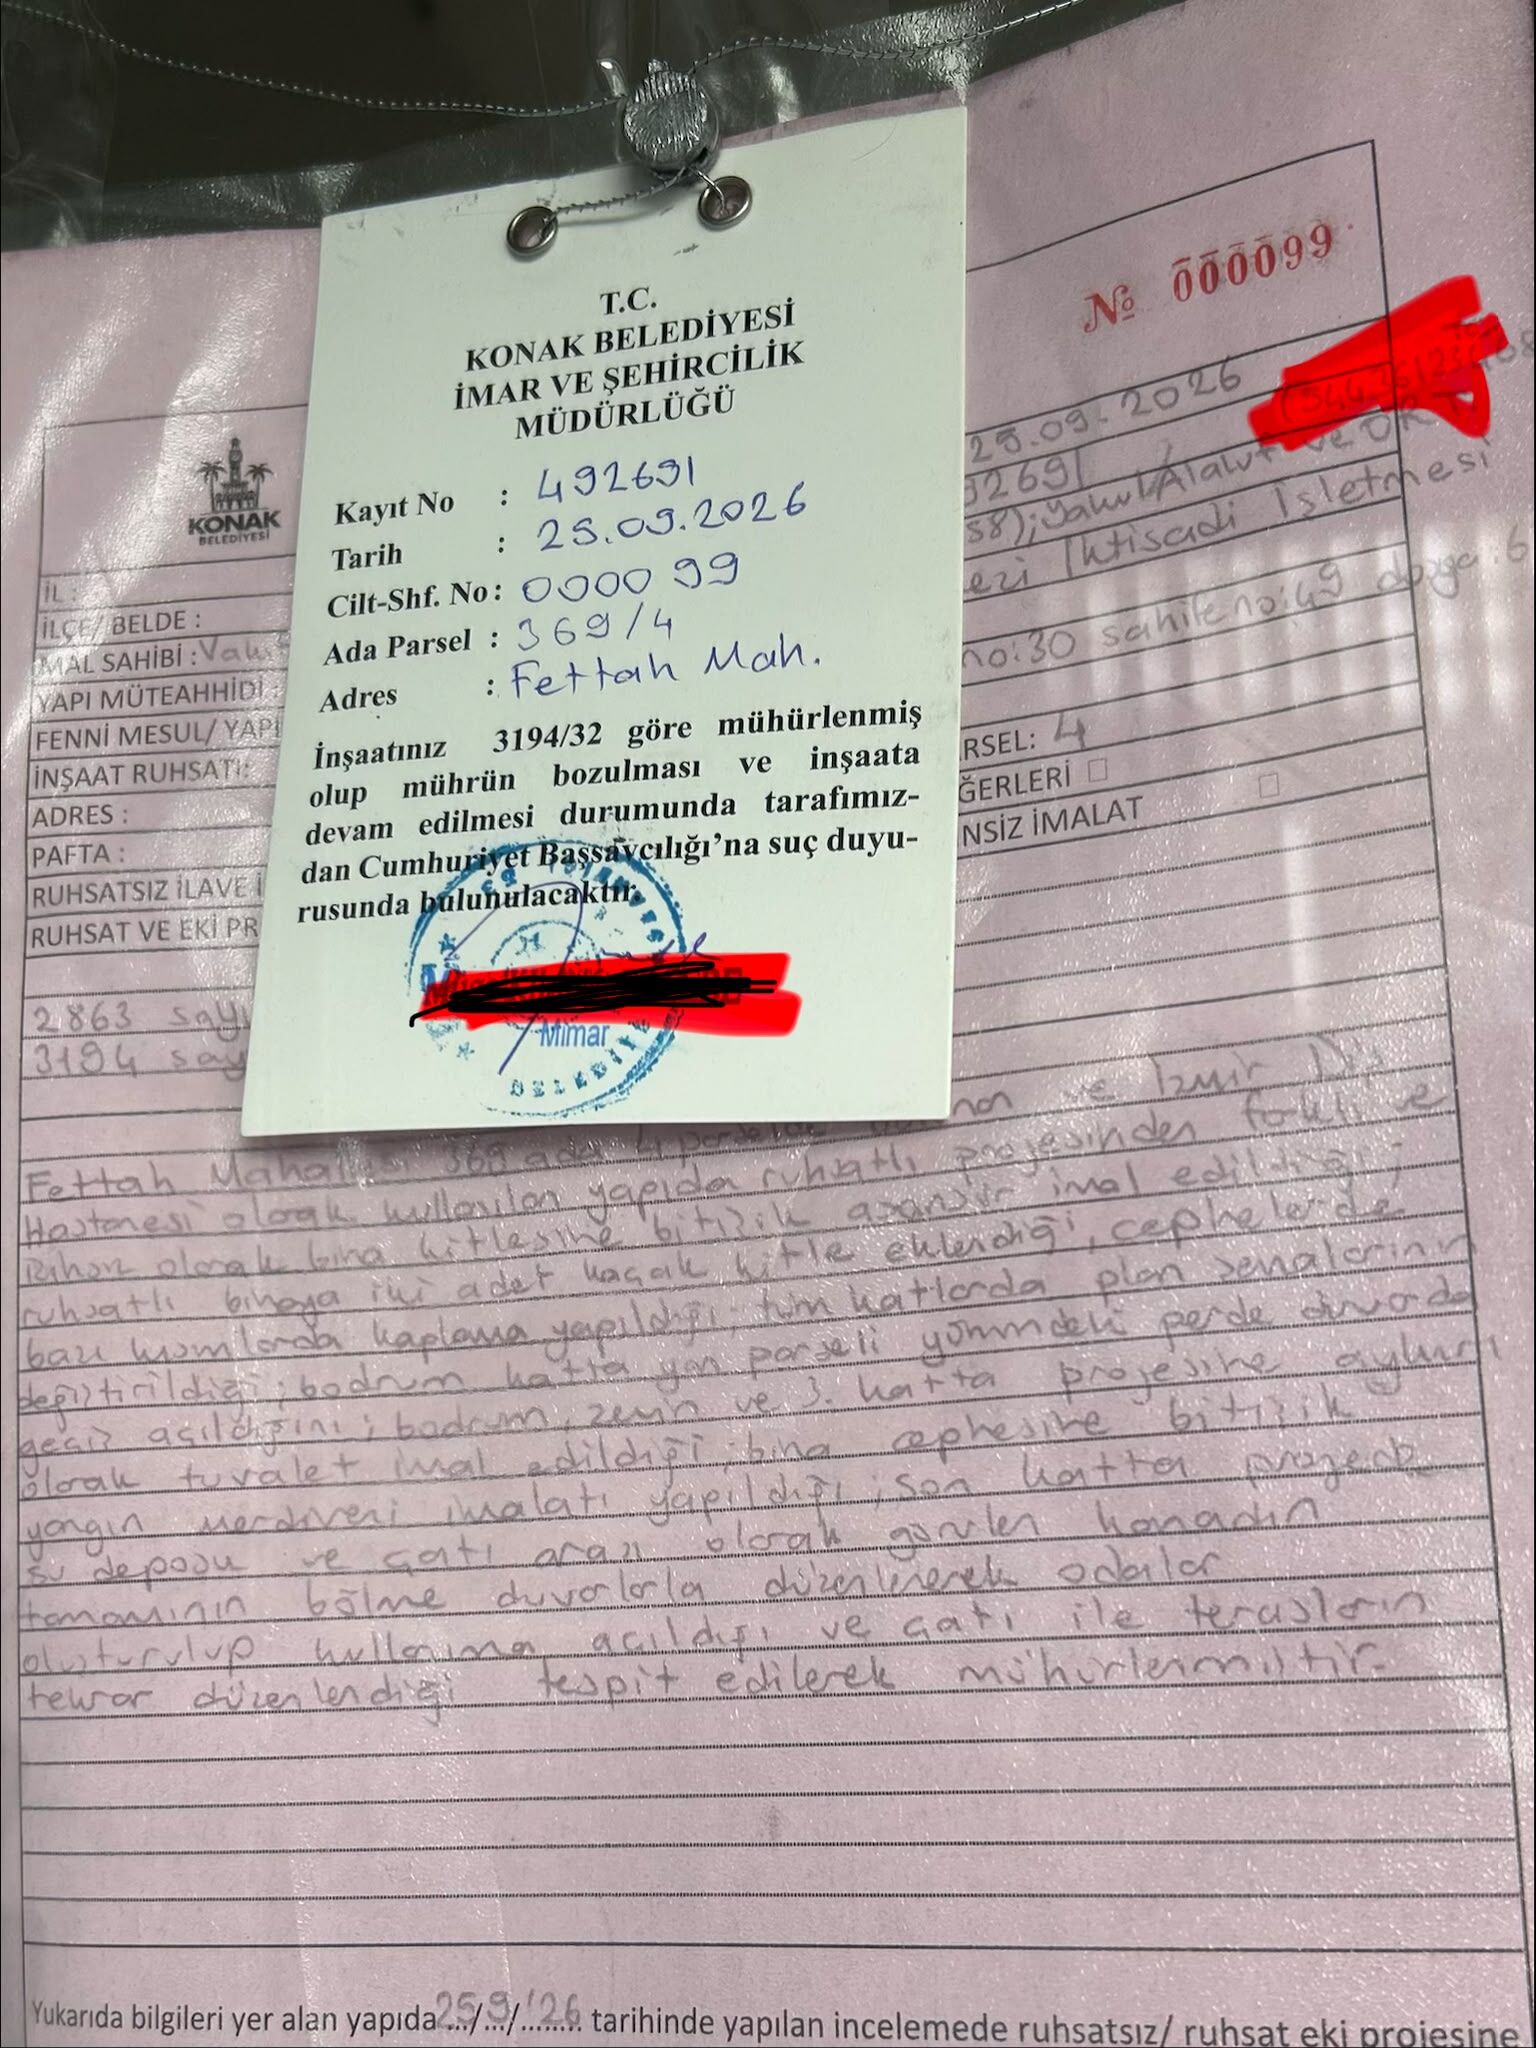 T.C.
KONAK BELEDİYESİ
İMAR VE ŞEHİRCİLİK
MÜDÜRLÜĞÜ
Kayıt No : 492691
Tarih : 25.09.2026
Cilt-Shf. No : 0000 99
Ada Parsel : 369/4
Adres : Fettah Mah.
İnşaatınız 3194/32 göre mühürlenmiş
olup mührün bozulması ve inşaata
devam edilmesi durumunda tarafımız-
dan Cumhuriyet Başsavcılığı'na suç duyu-
rusunda bulunulacaktır.
Mimar
BELEDİYE
№ 000099
KONAK
BELEDİYESİ
25.09.2026
92691
58);
ve
ezi İktisadi İşletmesi
no:30 sahife no:49 dosya:6
İL :
İLÇE/ BELDE :
MAL SAHİBİ : Vakı
YAPI MÜTEAHHİDİ :
FENNİ MESUL/ YAPI
İNŞAAT RUHSATI:
ADRES :
PAFTA :
RSEL: 4
RUHSATSIZ İLAVE İ
ĞERLERİ
RUHSAT VE EKİ PR
NSİZ İMALAT
2863 sayı
3194 say
Fettah Mahallesi 369 ada 4 parselde ve İzmir Diş
Hastanesi olarak kullanılan yapıda ruhsatlı projesinden farklı ve
olarak bina kitlesine bitişik asansör imal edildiği;
ruhsatlı binaya iki adet kaçak kitle eklendiği, cephelerde
bazı kısımlarda kaplama yapıldığı; tüm katlarda plan şemalarının
değiştirildiği; bodrum katta yan parseli yönündeki perde duvarda
geçiş açıldığını; bodrum, zemin ve 3. katta projesine aykırı
olarak tuvalet imal edildiği; bina cephesine bitişik
yangın merdiveni imalatı yapıldığı; son katta projede
su deposu ve çatı arası olarak görülen kanadın
tamamının bölme duvarlarla düzenlenerek odalar
oluşturulup kullanıma açıldığı ve çatı ile terasların
tekrar düzenlendiği tespit edilerek mühürlenmiştir.
Yukarıda bilgileri yer alan yapıda 25/9/'26 tarihinde yapılan incelemede ruhsatsız/ ruhsat eki projesine